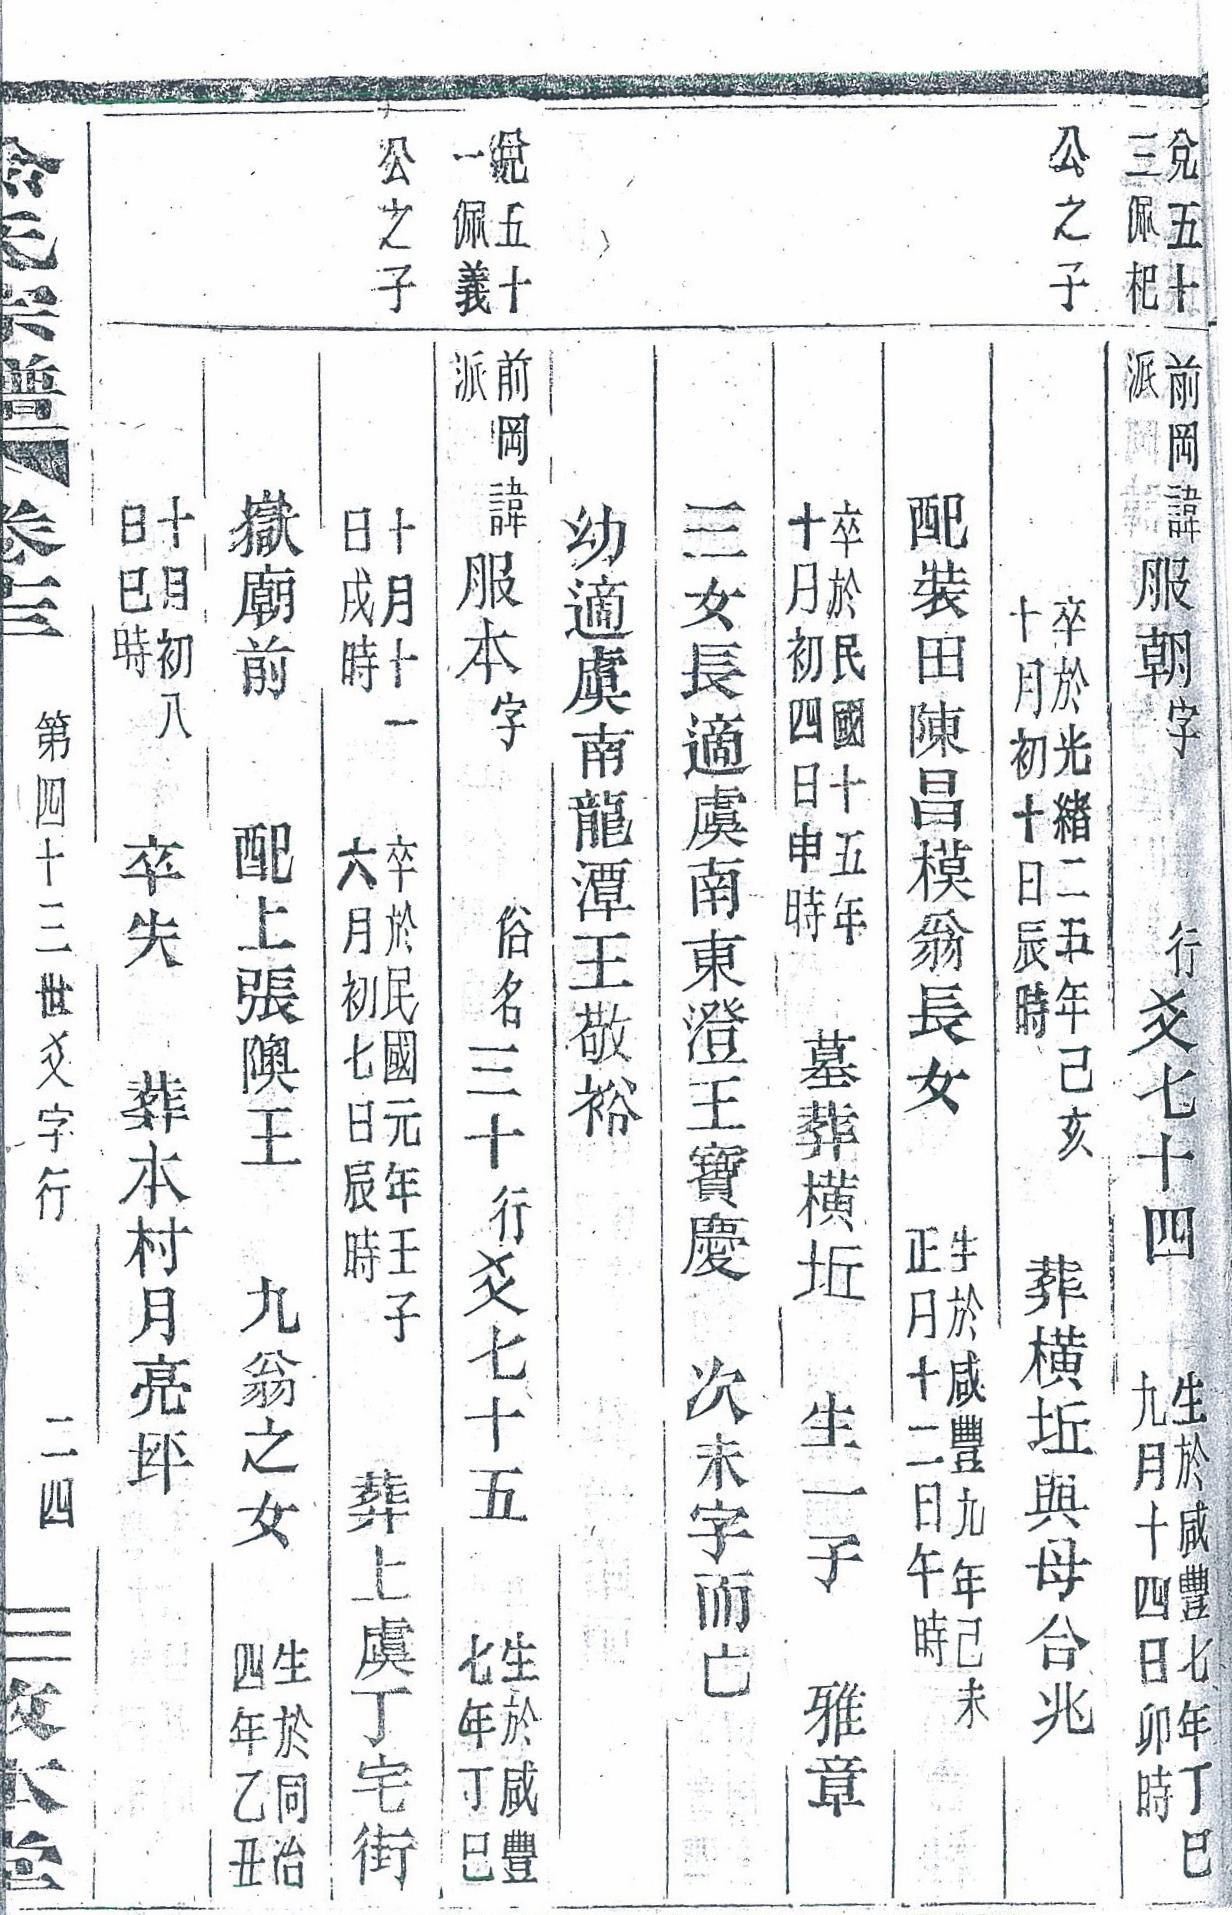 兌五十
三佩杞
公之子
前岡諱
派
服朝字 行爻七十四
生於咸豐七年丁巳
九月十四日卯時
卒於光緒二五年己亥
十月初十日辰時
葬橫坵與母合兆
配裝田陳昌模翁長女
生於咸豐九年己未
正月十二日午時
卒於民國十五年
十月初四日申時
墓葬橫坵 生一子 雅章
三女長適虞南東澄王寶慶 次未字而亡
幼適虞南龍潭王敬裕
兌五十
一佩義
公之子
前岡諱
派
服本字 俗名三十 行爻七十五
生於咸豐
七年丁巳
十月十一
日戌時
卒於民國元年壬子
六月初七日辰時
葬上虞丁宅街
嶽廟前 配上張隩王 九翁之女
生於同治
四年乙丑
十月初八
日巳時
卒失 葬本村月亮坪
氏宗譜 卷三 第四十三世爻字行 二四 本堂